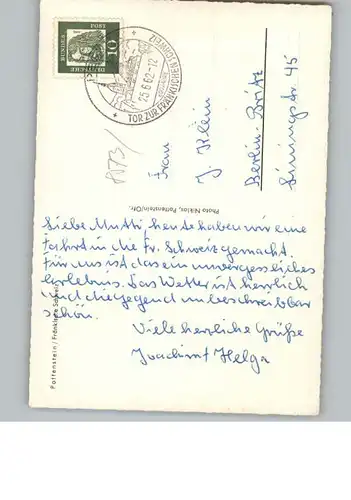 DEUTSCHE
BUNDES
POST
10
FORCHHEIM
25.6.62-12
TOR ZUR FRÄNKISCHEN
Frau
J. Klein
Berlin-Britz
45
Photo Niklas, Pottenstein/Ofr.
Liebe Mutti, heute haben wir eine
Fahrt in die Fr. Schweiz gemacht.
Für uns ist das ein unvergessliches
Erlebnis. Das Wetter ist herrlich
und die Gegend unbeschreiblich
schön.
Viele herzliche Grüße
Joachim + Helga
Pottenstein / Fränkische Schweiz